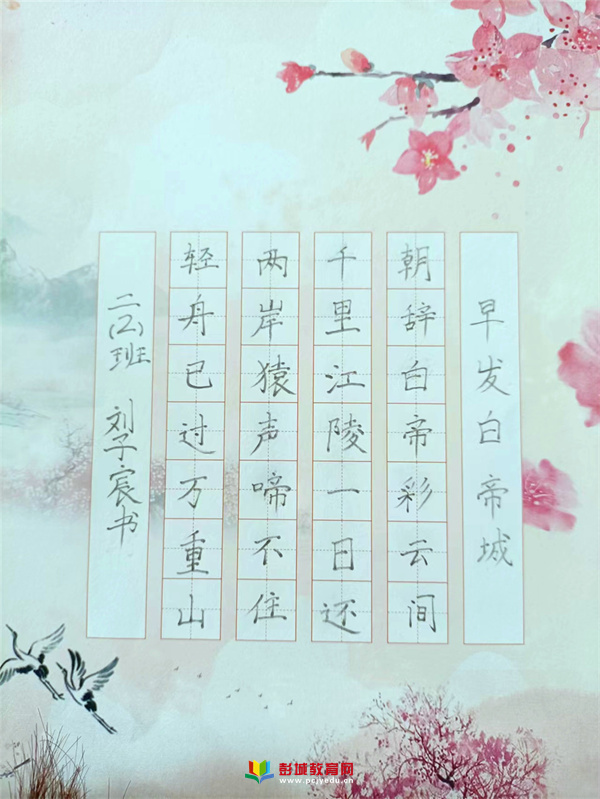 早发白帝城
朝辞白帝彩云间
千里江陵一日还
两岸猿声啼不住
轻舟已过万重山
二(2)班 刘子宸书
彭城教育网
www.pcjyedu.cn